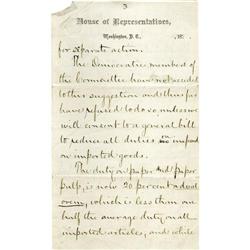 3
House of Representatives,
Washington, D. C., 187
for separate action.
The Democratic members of
the Committee have not acceded
to this suggestion and thus far
have refused to do so, unless we
will consent to a general bill
to reduce all duties on
on imported goods.
The duty on paper and paper
pulp, is now 20 per cent ad val
orem, which is less than one
half the average duty on all
imported articles, and while